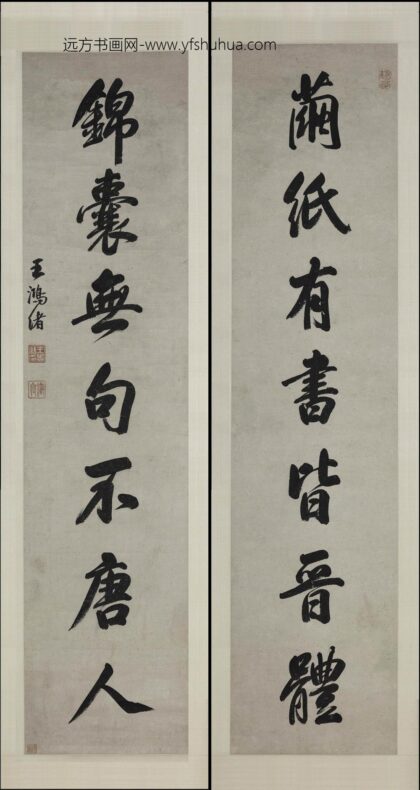 远方书画网-www.yfshuhua.com
蕳紙有書皆晉體
錦囊無句不唐人
王鴻緒